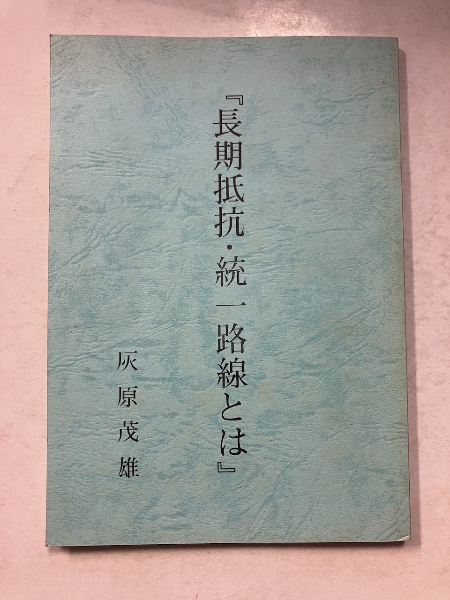 『長期抵抗・統一路線とは』
灰原茂雄